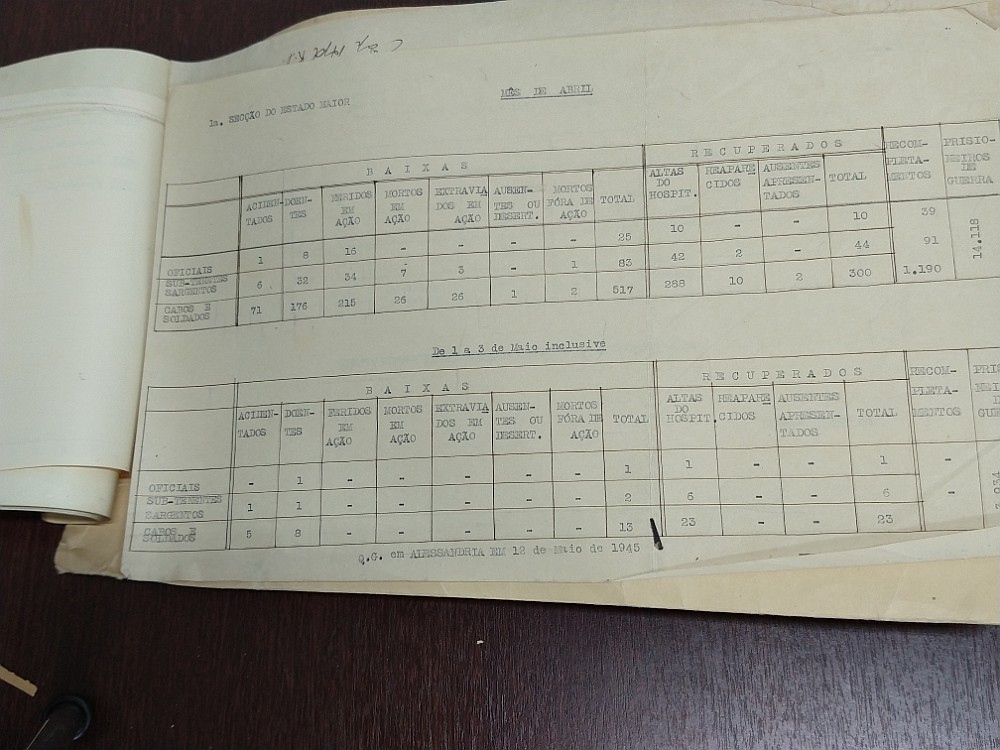 1a. SECÇÃO DO ESTADO MAIOR
MÊS DE ABRIL
B A I X A S | R E C U P E R A D O S | RECOM-PLETA-MENTOS | PRISIO-NEIROS DE GUERRA
ACIDEN-TADOS | DOEN-TES | FERIDOS EM AÇÃO | MORTOS EM AÇÃO | EXTRAVIA DOS EM AÇÃO | AUSEN-TES OU DESERT. | MORTOS FÓRA DE AÇÃO | TOTAL | ALTAS DO HOSPIT. | REAPARE CIDOS | AUSENTES APRESEN-TADOS | TOTAL
OFICIAIS | 1 | 8 | 16 | - | - | - | - | 25 | 10 | - | - | 10 | 39 | 14.118
SUB-TENENTES SARGENTOS | 6 | 32 | 34 | 7 | 3 | - | 1 | 83 | 42 | 2 | - | 44 | 91
CABOS E SOLDADOS | 71 | 176 | 215 | 26 | 26 | 1 | 2 | 517 | 288 | 10 | 2 | 300 | 1.190
De 1 a 3 de Maio inclusive
B A I X A S | R E C U P E R A D O S | RECOM-PLETA-MENTOS
ACIDEN-TADOS | DOEN-TES | FERIDOS EM AÇÃO | MORTOS EM AÇÃO | EXTRAVIA DOS EM AÇÃO | AUSEN-TES OU DESERT. | MORTOS FÓRA DE AÇÃO | TOTAL | ALTAS DO HOSPIT. | REAPARE CIDOS | AUSENTES APRESEN-TADOS | TOTAL
OFICIAIS | - | 1 | - | - | - | - | - | 1 | 1 | - | - | 1 | -
SUB-TENENTES SARGENTOS | 1 | 1 | - | - | - | - | - | 2 | 6 | - | - | 6 | -
CABOS E SOLDADOS | 5 | 8 | - | - | - | - | - | 13 | 23 | - | - | 23
Q.G. em ALESSANDRIA EM 12 de Maio de 1945